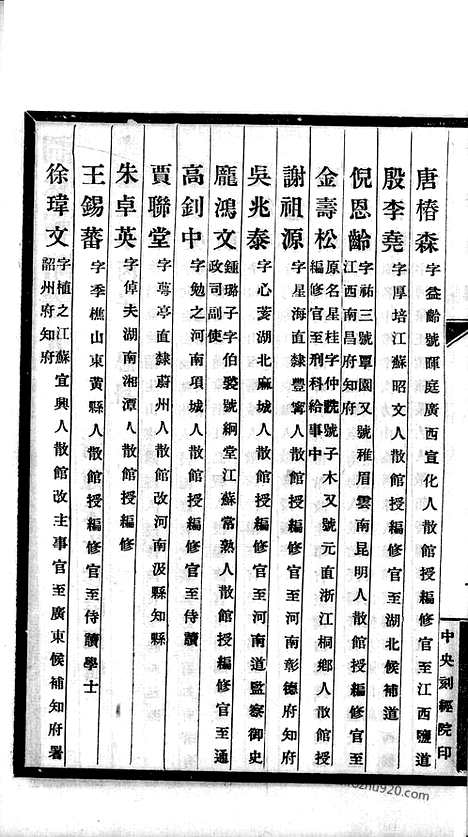 唐椿森 字益齡號暉庭廣西宣化人散館授編修官至江西鹽道
殷李堯 字厚培江蘇昭文人散館授編修官至湖北候補道
倪恩齡 字祐三號覃園又號雅眉雲南昆明人散館授編修官至
江西南昌府知府
金壽松 原名星桂字仲號子木又號元直浙江桐鄉人散館授
編修官至刑科給事中
謝祖源 字星海直隸豐寧人散館授編修官至河南彰德府知府
吳兆泰 字心荄湖北麻城人散館授編修官至河南道監察御史
龐鴻文 鍾璐子字伯號絅堂江蘇常熟人散館授編修官至通
政司副使
高釗中 字勉之河南項城人散館授編修官至侍讀
賈聯堂 字亭直隸蔚州人散館改河南汲縣知縣
朱卓英 字倬夫湖南湘潭人散館授編修
王錫蕃 字季樵山東黃縣人散館授編修官至侍讀學士
徐瑋文 字植之江蘇宜興人散館改主事官至廣東候補知府署
韶州府知府
中央刻經院印